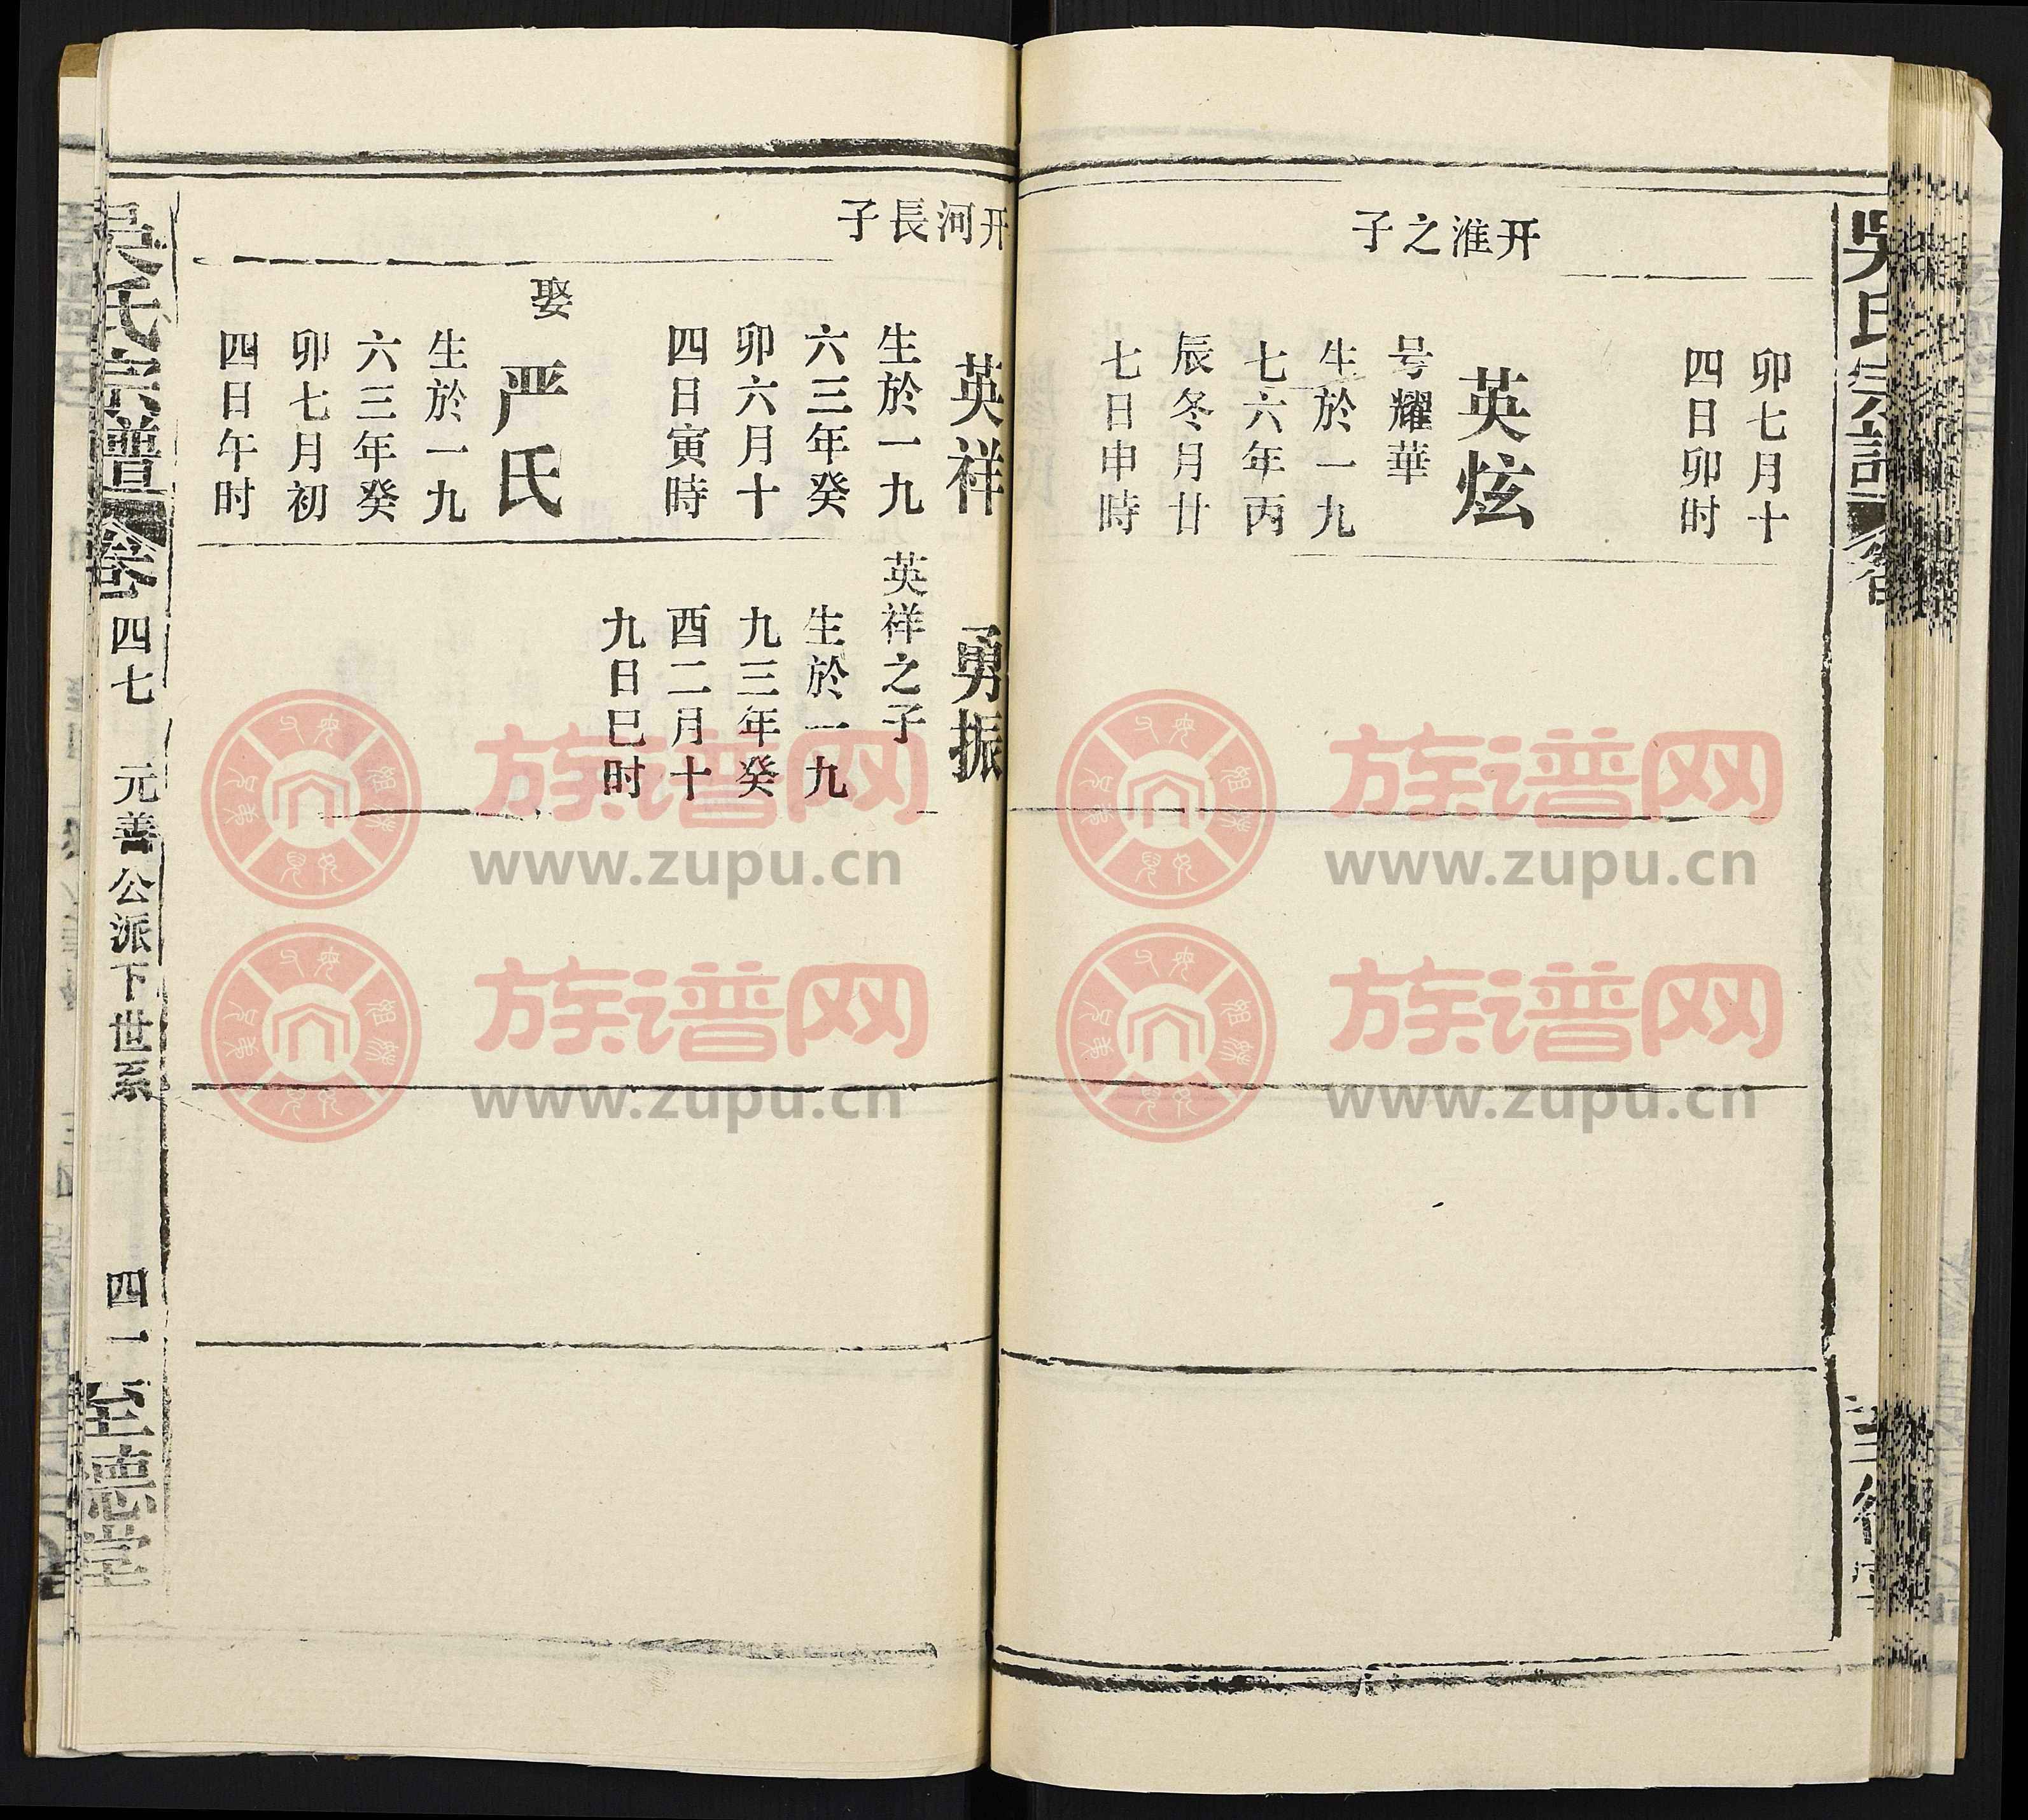 卯七月十
四日卯时
开淮之子
英炫
号耀華
生於一九
七六年丙
辰冬月廿
七日申時
开河長子
英祥
生於一九
六三年癸
卯六月十
四日寅時
娶
严氏
生於一九
六三年癸
卯七月初
四日午时
勇振
英祥之子
生於一九
九三年癸
酉二月十
九日巳时
吴氏宗譜
卷
四七
元善公派下世系
四一
至德堂
吳氏宗譜
族谱网
www.zupu.cn
族谱网
www.zupu.cn
族谱网
www.zupu.cn
族谱网
www.zupu.cn